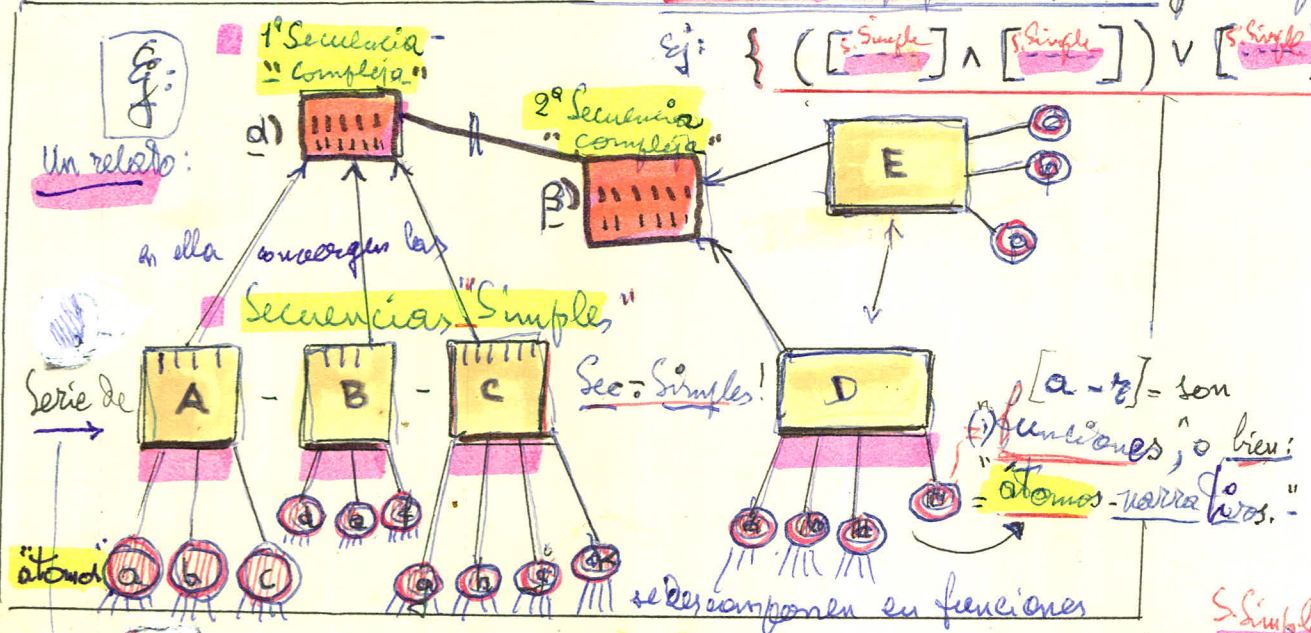 Ej:
1ª Secuencia -
"compleja"
Ej: { ([S. Simple] ∧ [S. Simple]) ∨ [S. Simple
α)
2ª Secuencia
"compleja"
β)
E
Un relato:
en ella convergen las
Secuencias "Simples"
Serie de
A - B - C
Sec = Simples!
D
[a - z] = son
funciones, o bien:
= "átomos - narrativos." -
"átomos"
a b c
d e f
se descomponen en funciones
S. Simpl